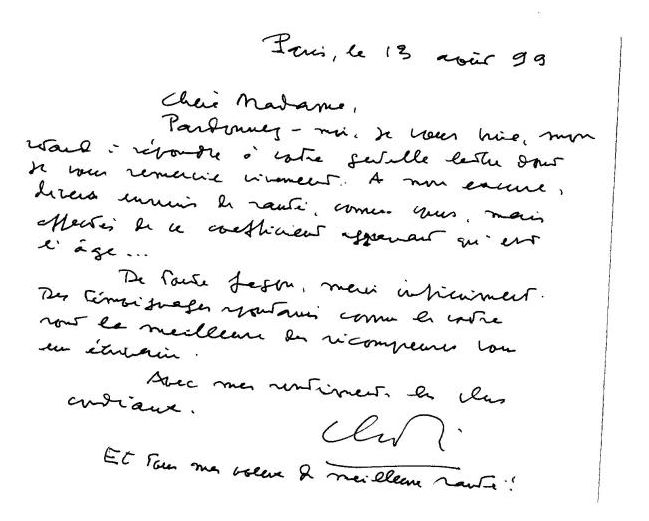 Paris, le 13 août 99
Chère Madame,
Pardonnez-moi, je vous prie, mon
retard à répondre à votre gentille lettre dont
je vous remercie vivement. A mon excuse,
divers ennuis de santé, comme vous, mais
affectés de ce coefficient aggravant qu'est
l'âge...
De toute façon, merci infiniment.
Des témoignages spontanés comme le vôtre
sont la meilleure des récompenses pour
un écrivain.
Avec mes sentiments les plus
cordiaux.
Et tous mes voeux de meilleure santé !